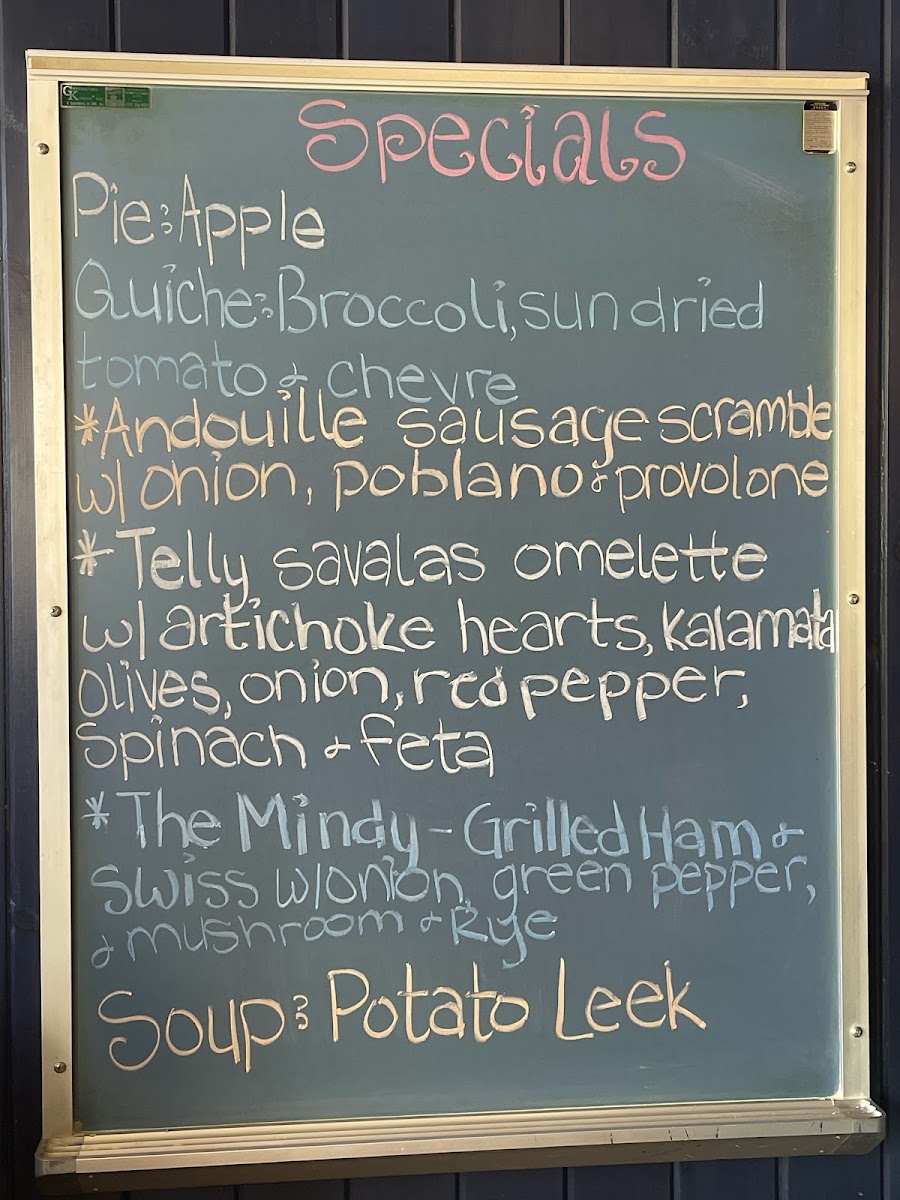 Specials
Pie: Apple
Quiche: Broccoli, sun dried
tomato & chevre
*Andouille sausage scramble
w/ onion, poblano & provolone
* Telly savalas omelette
w/ artichoke hearts, kalamata
olives, onion, red pepper,
spinach & feta
*The Mindy - Grilled Ham &
swiss w/onion, green pepper,
& mushroom & Rye
Soup: Potato Leek